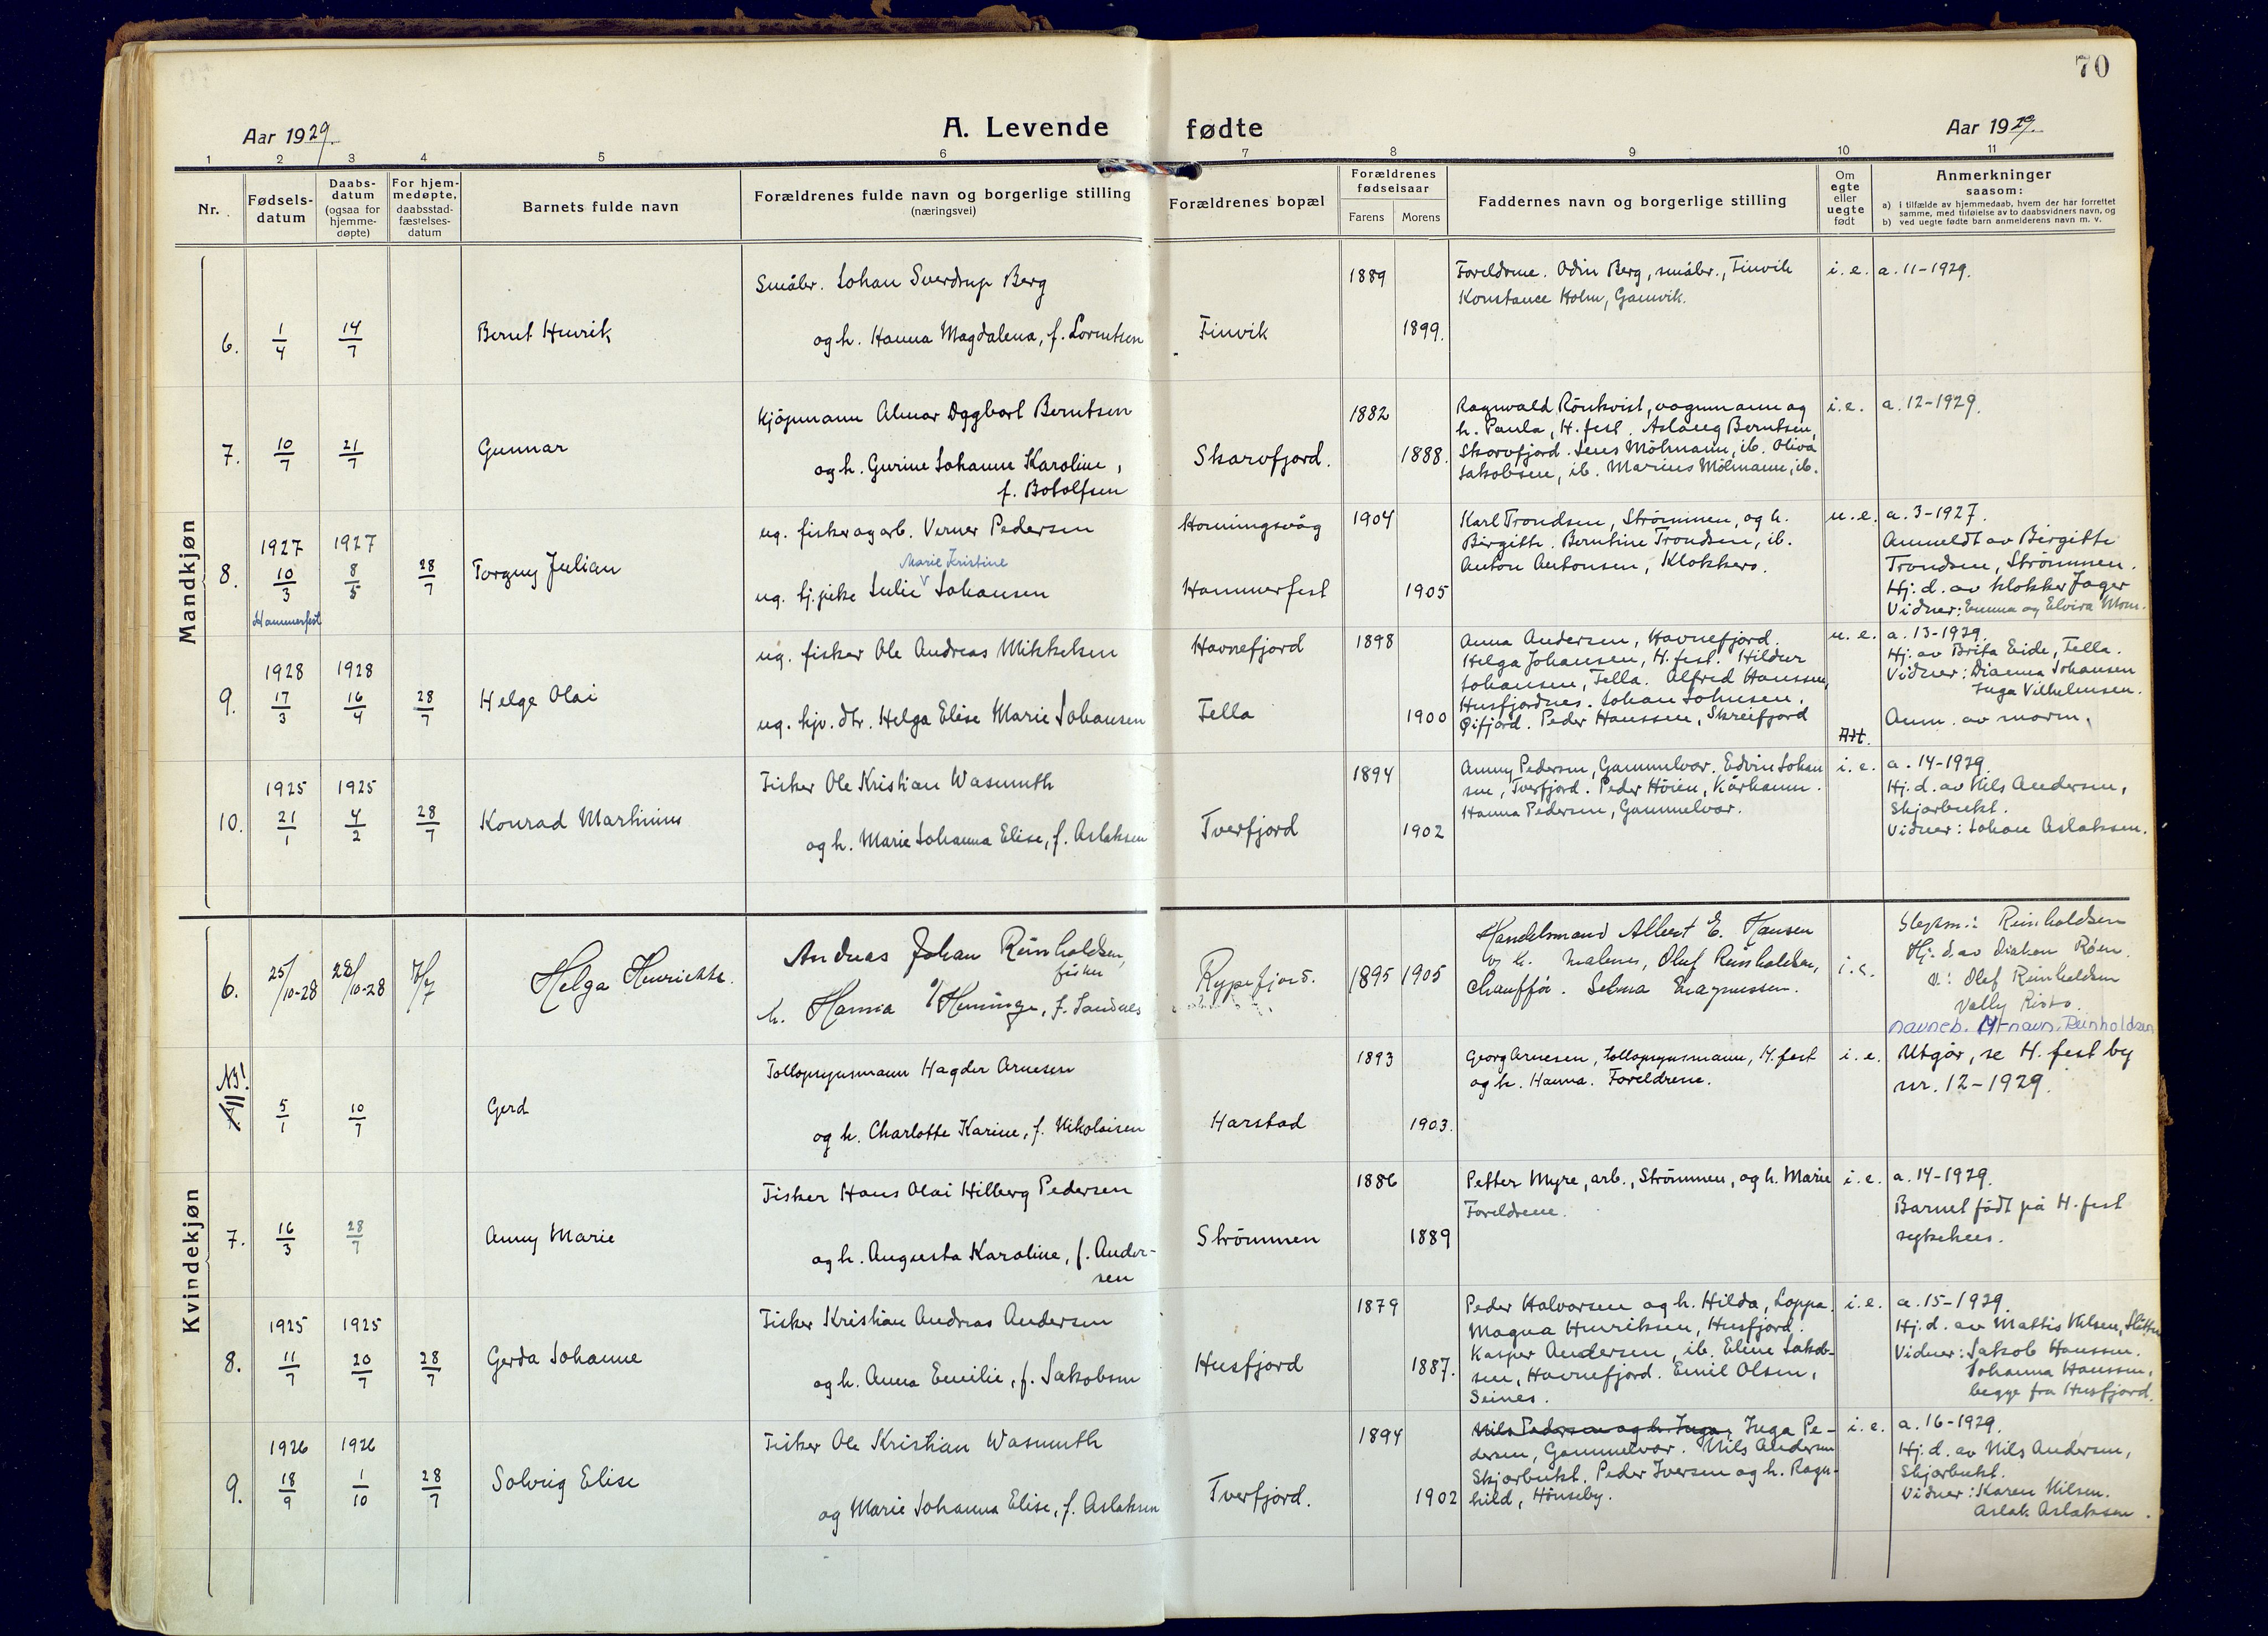 70
Aar 1929.
A. Levende fødte
Aar 1929.
1 2 3 4 5 6 7 8 9 10 11
Nr.
Fødsels-
datum
Daabs-
datum
(ogsaa for
hjemme-
døpte)
For hjem-
medøpte,
daabsstad-
fæstelses-
datum
Barnets fulde navn
Forældrenes fulde navn og borgerlige stilling
(næringsvei)
Forældrenes bopæl
Forældrenes
fødselsaar
Farens Morens
Faddernes navn og borgerlige stilling
Om
egte
eller
uegte
født
Anmerkninger
saasom:
a) i tilfælde av hjemmedaab, hvem der har forrettet
samme, med tilføielse av to daabsvidners navn, og
b) ved uegte fødte barn anmelderens navn m. v.
Mandkjøn
6. 1/4 14/7 Bernt Henrik
Småbr. Johan Sverdrup Berg
og h. Hanna Magdalena, f. Lorentsen
Finvik
1889
1899.
Foreldrene. Odin Berg, småbr., Finvik
Konstance Holm, Gamvik.
i. e.
a. 11-1929.
7. 10/7 21/7 Gunnar
Kjøpmann Almar Dggbart Berntsen
og h. Gurine Johanne Karoline,
f. Botolfsen
Skarvfjord.
1882
1888.
Ragnvald Rönkvist, vognmann og
h. Paula, H.fest. Aslaug Berntsen,
Skarvfjord. Jens Mölmann, ib. Oliva
Jakobsen, ib. Marius Mölmann, ib.
i. e.
a. 12-1929.
8. 1927 10/3 Hammerfest 1927 8/5 28/7 Torguy Julian
ug. fisker og arb. Verner Pedersen
Marie Kristine
ug. tj.pike Julie Johansen
Honningsvåg
Hammerfest
1904
1905
Karl Trondsen, Strömmen, og h.
Birgitte. Berntine Trondsen, ib.
Anton Antonsen, Klokkero.
u. e.
a. 3-1927.
Anmeldt av Birgitte
Trondsen, Strömmen.
Hj. d. av klokker Jager
Vidner: Emma og Elvira
9. 1928 17/3 1928 16/4 28/7 Helge Olai
ug. fisker Ole Andreas Mikkelsen
ug. hjv. dtr. Helga Elise Marie Johansen
Havnefjord
Fella
1898
1900
Anna Andersen, Havnefjord.
Helga Johansen, H.fest. Hildur
Johansen, Fella. Alfred Hanssen,
Husfjordnes. Johan Johnsen,
Öifjord. Peder Hanssen, Skreifjord
u. e.
Att.
a. 13-1929.
Hj. av Brita Eide, Fella.
Vidner: Dianna Johansen
Inga Vilhelmsen.
Anm. av morm.
10. 1925 21/1 1925 4/2 28/7 Konrad Martinius
Fisker Ole Kristian Wasmuth
og h. Marie Johanna Elise, f. Aslaksen
Tverfjord
1894
1902
Anny Pedersen, Gammelvær. Edvin Johan
sen, Tverfjord. Peder Höien, Kårhamn.
Hanna Pedersen, Gammelvær.
i. e.
a. 14-1929.
Hj. d. av Nils Andersen,
Skjarbukt.
Vidner: Johan Aslaksen.
Kvindekjøn
6. 25/10-28 28/10-28 7/7 Helga Henriette.
Andreas Johan Reinholdsen,
fisker
h. Hanna Henninge, f. Sandnes
Rypefjord.
1895 1905
Handelsmand Albert E. Hansen
og h. Malene, Oluf Reinholdsen,
chauffør. Selma Magnussen.
i. e.
Slegtsn.: Reinholdsen
Hj. d. av Diakon Røen.
V.: Olaf Reinholdsen
Vally Risto
navneb. M-navn: Reinholdsen
N3!
7. 5/1 10/7 Gerd
Tollopsynsmann Hagder Arnesen
og h. Charlotte Karine, f. Nikolaisen
Harstad
1893
1903.
Georg Arnesen, tollopsynsmann, H.fest
og h. Hanna. Foreldrene.
i. e.
Utgår, se H.fest by
nr. 12-1929.
7. 16/3 28/7 Anny Marie
Fisker Hans Olai Hilberg Pedersen
og h. Augusta Karoline, f. Ander-
sen
Strömmen
1886
1889
Petter Myre, arb., Strömmen, og h. Marie
Foreldrene.
i. e.
a. 14-1929.
Barnet født på H.fest
sykehus.
8. 1925 11/7 1925 20/7 28/7 Gerda Johanne
Fisker Kristian Andreas Andersen
og h. Anna Emilie, f. Jakobsen
Husfjord
1879
1887.
Peder Halvorsen og h. Hilda, Loppa.
Magna Henriksen, Husfjord.
Kasper Andersen, ib. Eline Jakob-
sen, Havnefjord. Emil Olsen,
Seines.
i. e.
a. 15-1929.
Hj. d. av Mattis Nilsen,
Vidner: Jakob Hanssen.
Johanna Hanssen,
begge fra Husfjord.
9. 1926 18/9 1926 1/10 28/7 Solveig Elise
Fisker Ole Kristian Wasmuth
og Marie Johanna Elise, f. Aslaksen
Tverfjord.
1894
1902
Nils Pedersen og h. Inga, Inga Pe-
dersen, Gammelvær. Nils Andersen
Skjarbukt. Peder Iversen og h. Ragn-
hild, Hönseby.
i. e.
a. 16-1929.
Hj. d. av Nils Andersen,
Skjarbukt.
Vidner: Karen Nilsen.
Aslak Aslaksen.